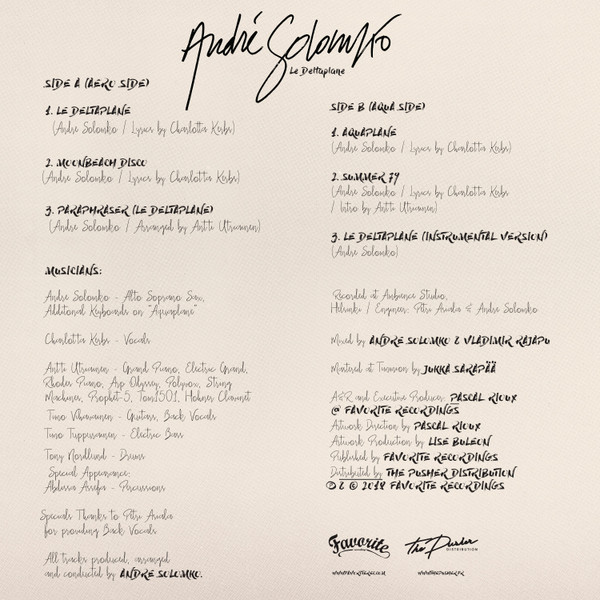 André Solomko
Le Deltaplane
SIDE A (AERO SIDE)
1. LE DELTAPLANE
(Andre Solomko / Lyrics by Charlotta Kerbs)
2. MOONBEACH DISCO
(Andre Solomko / Lyrics by Charlotta Kerbs)
3. PARAPHRASER (LE DELTAPLANE)
(Andre Solomko / Arranged by Antti Utriainen)
MUSICIANS:
Andre Solomko - Alto Soprano Sax,
Additonal Keyboards on "Aquaplane"
Charlotta Kerbs - Vocals
Antti Utriainen - Grand Piano, Electric Grand,
Rhodes Piano, Arp Odyssey, Polymox, String
Machines, Prophet-5, Tom1501, Hohner Clavinet
Timo - Guitars, Back Vocals
Timo Tuppurainen - Electric Bass
Tomy Nordlund - Drums
Special Appearance:
Abdissa Assefa - Percussions
Specials Thanks to Petri
for providing Back Vocals
All tracks produced, arranged
and conducted by ANDRE SOLOMKO.
SIDE B (AQUA SIDE)
1. AQUAPLANE
(Andre Solomko / Lyrics by Charlotta Kerbs)
2. SUMMER 79
(Andre Solomko / Lyrics by Charlotta Kerbs
/ Intro by Antti Utriainen)
3. LE DELTAPLANE (INSTRUMENTAL VERSION)
(Andre Solomko)
Recorded at Ambience Studio,
Helsinki / Engineers: Petri & Andre Solomko
Mixed by ANDRÉ SOLOMKO & VLADIMIR RAJAPU
Mastered at Timmion by JUKKA SARAPÄÄ
A&R and Executive Producer: PASCAL RIOUX
@ FAVORITE RECORDINGS
Artwork Direction by PASCAL RIOUX
Artwork Production by LISE BULEON
Published by FAVORITE RECORDINGS
Distributed by THE PUSHER DISTRIBUTION
& © 2018 FAVORITE RECORDINGS
Favorite
The Pusher
DISTRIBUTION